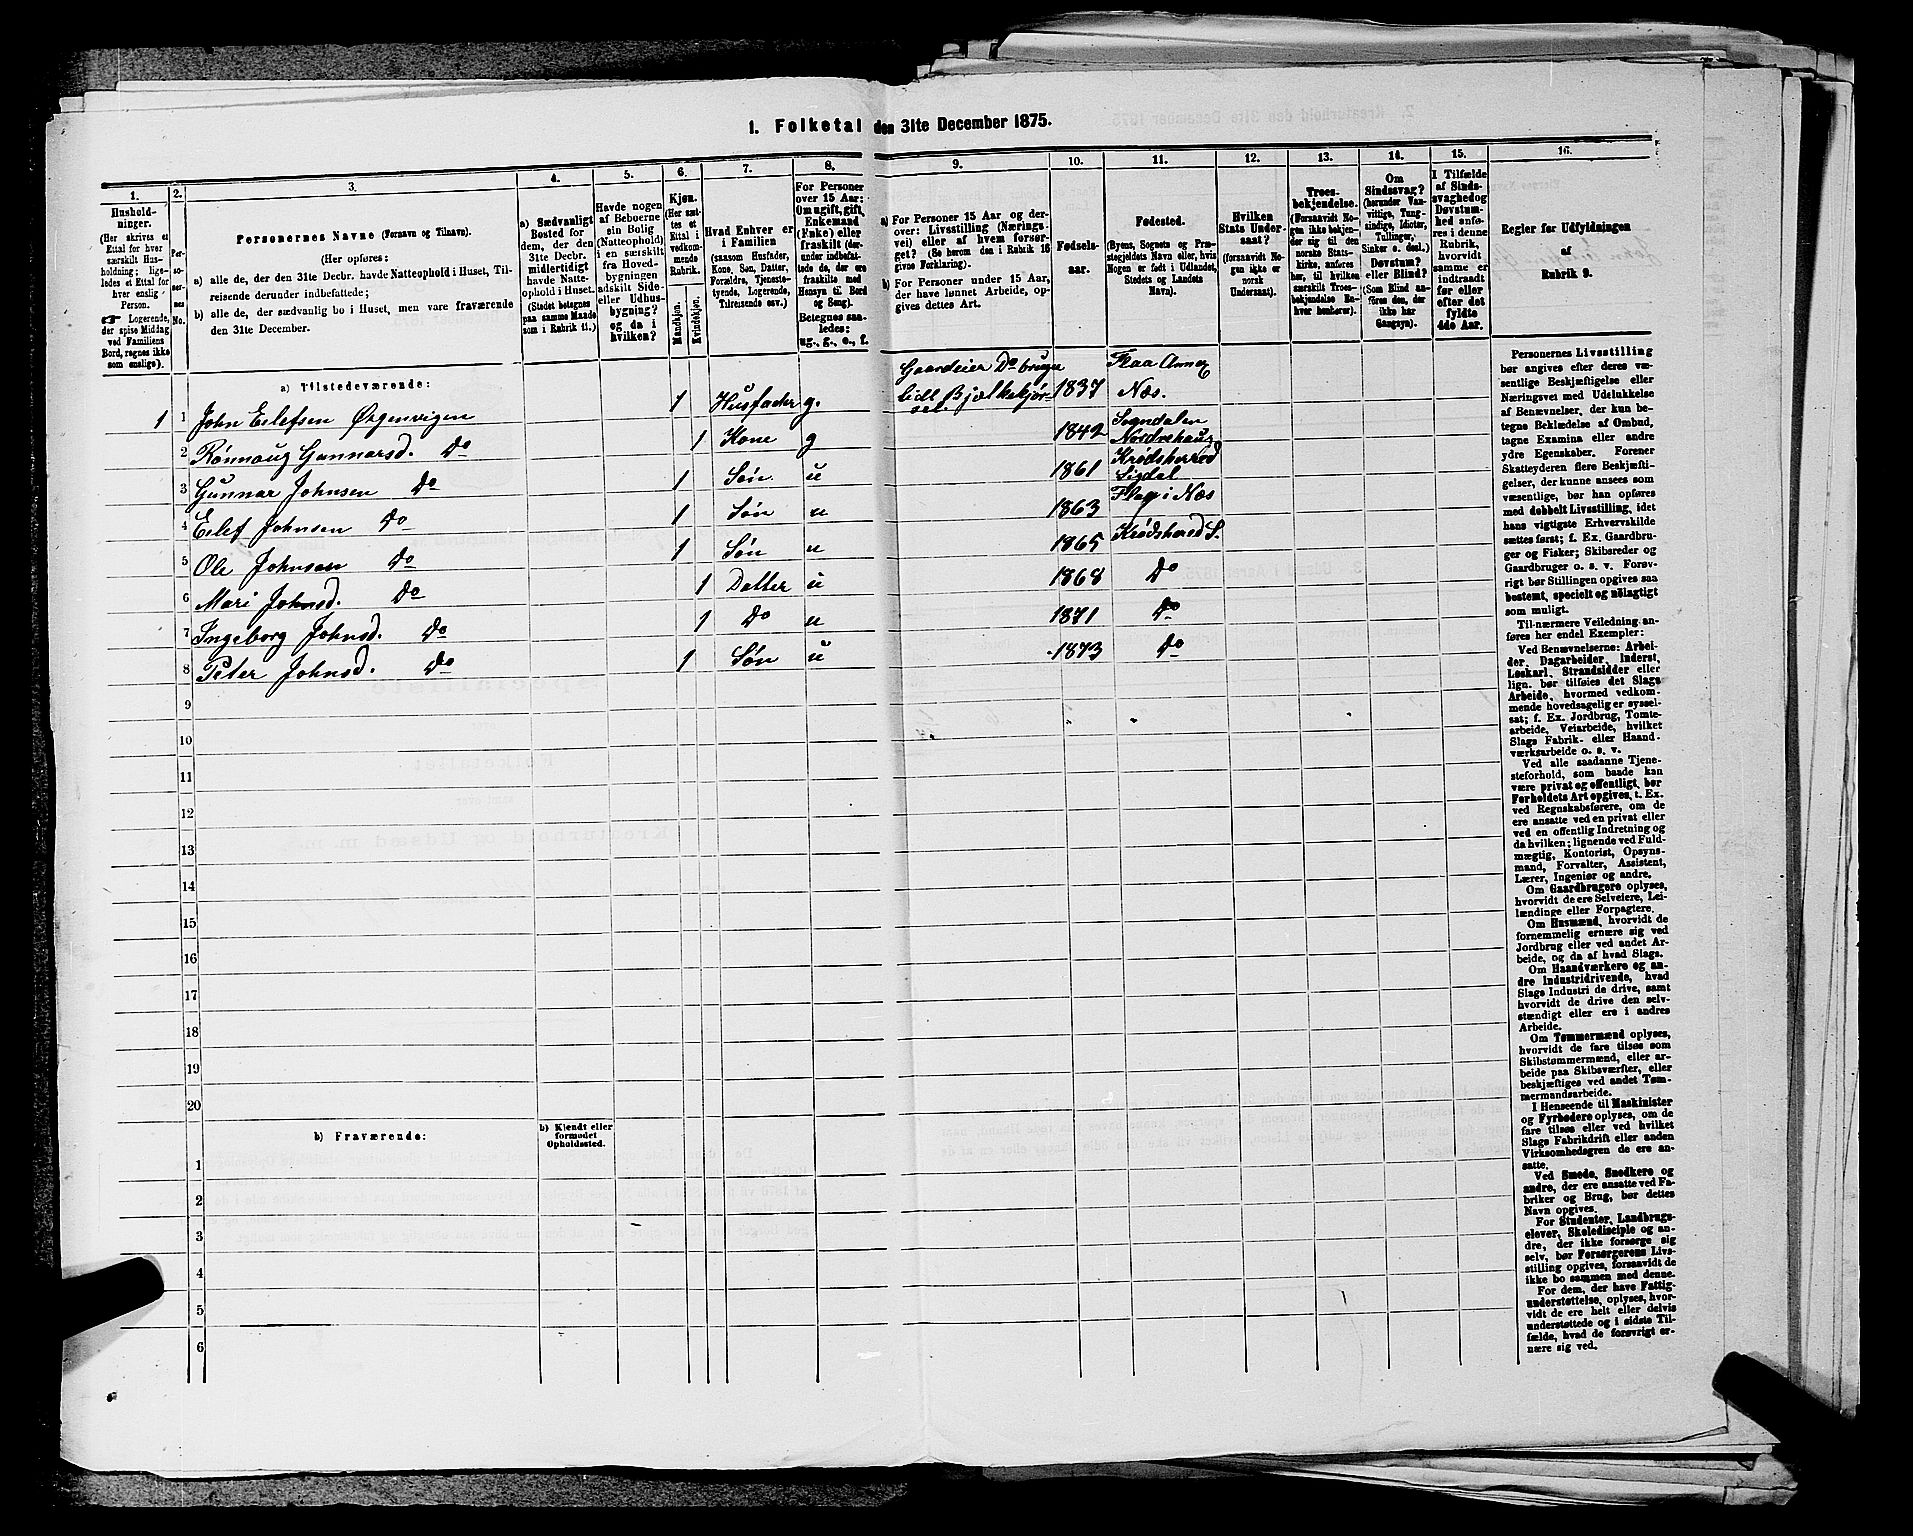 1. Folketal den 31te December 1875.
1.
2.
3.
4.
5.
6.
7.
8.
9.
10.
11.
12.
13.
14.
15.
16.
Hushold-
ninger.
(Her skrives et
Ettal for hver
særskilt Hus-
holdning; lige-
ledes et Ettal for
hver enslig
Person.
☞ Logerende,
der spise Middag
ved Familiens
Bord, regnes ikke
som enslige).
Per-
so-
ner-
nes
No.
Personernes Navne (Fornavn og Tilnavn).
(Her opføres:
a) alle de, der den 31te Decbr. havde Natteophold i Huset, Til-
reisende derunder indbefattede;
b) alle de, der sædvanlig bo i Huset, men vare fraværende
den 31te December.
a) Sædvanligt
Bosted for
dem, der den
31te Decbr.
midlertidigt
havde Natte-
ophold i Huset.
(Stedet betegnes
paa samme Maade
som i Rubrik 11.)
Havde nogen
af Beboerne
sin Bolig
(Natteophold)
i en særskilt
fra Hoved-
bygningen
adskilt Side-
eller Udhus-
bygning?
og da i
hvilken?
Kjøn.
(Her sæt-
tes et
Ettal i
vedkom-
mende
Rubrik.
Mandkjøn.
Kvindekjøn.
Hvad Enhver er
i Familien
(saasom Husfader,
Kone, Søn, Datter,
Forældre, Tjeneste-
tyende, Logerende,
Tilreisende osv.)
For Personer
over 15 Aar:
Om ugift, gift,
Enkemand
(Enke) eller
fraskilt (der-
under indbefat-
tede de, der ere
fraskilte med
Hensyn til Bord
og Seng).
Betegnes saa-
ledes:
ug., g., e., f.
a) For Personer 15 Aar og der-
over: Livsstilling (Nærings-
vei) eller af hvem forsør-
get? (Se herom den i Rubrik 16
givne Forklaring).
b) For Personer under 15 Aar,
der have lønnet Arbeide, op-
gives dettes Art.
Fødsels-
aar.
Fødested.
(Byens, Sognets og Præ-
stegjeldets Navn eller, hvis
Nogen er født i Udlandet,
Stedets og Landets
Navn).
Hvilken
Stats Under-
saat?
(forsaavidt No-
gen ikke er
norsk
Undersaat).
Troes-
bekjendelse.
(Forsaavidt No-
gen ikke bekjen-
der sig til den
norske Stats-
kirke, anføres
her, til hvilken
særskilt Troes-
bekjendelse En-
hver henhører).
Om
Sindssvag?
(herunder Van-
vittige, Tung-
sindige, Idioter,
Tullinger,
Sinker o. desl.)
Døvstum?
eller Blind?
(Som Blind an-
føres den, der
ikke har
Gangsyn).
I Tilfælde
af Sinds-
svaghed og
Døvstum-
hed anfø-
res i denne
Rubrik,
hvorvidt
samme er
indtraadt
før eller
efter det
fyldte
4de Aar.
Regler for Udfyldningen
af
Rubrik 9.
a) Tilstedeværende:
1 1 John Eilefsen Ørgenvigen 1 Husfader g. Gaardeier Do bruger lidt Bjælkekjørsel. 1837 Flaa Annex Næs.
2 Rönnaug Gunnarsd. Do 1 Kone g 1842 Sogndalen Nordrehaug
3 Gunnar Johnsen Do 1 Søn u 1861 Krødsherred Sigdal
4 Eilef Johnsen Do 1 Søn u 1863 Flaa i Næs
5 Ole Johnsen Do 1 Søn u 1865 Krødsherred S.
6 Mari Johnsd. Do 1 Datter u 1868 Do
7 Ingeborg Johnsd. Do 1 Do u 1871 Do
8 Peter Johnsd. Do 1 Søn u 1873 Do
9
10
11
12
13
14
15
16
17
18
19
20
b) Fraværende:
b) Kjendt eller
formodet
Opholdssted.
1
2
3
4
5
6
Personernes Livsstilling
bør angives efter deres væ-
sentlige Beskjæftigelse eller
Næringsvei med Udelukkelse
af Benævnelser, der kun be-
tegne Beklædelse af Ombud,
tagne Examina eller andre
ydre Egenskaber. Forener
Skatteyderen flere Beskjæfti-
gelser, der kunne ansees som
væsentlige, bør han opføres
med dobbelt Livsstilling, idet
hans vigtigste Erhvervskilde
sættes først; f. Ex. Gaardbru-
ger og Fisker; Skibsreder og
Gaardbruger o. s. v. Forøv-
rigt bør Stillingen opgives saa
bestemt, specielt og nøiagtigt
som muligt.
Til nærmere Veiledning an-
føres her endel Exempler:
Ved Benævnelserne: Arbei-
der, Dagarbeider, Inderst,
Løskarl, Strandsidder eller
lign. bør tilføies det Slags
Arbeide, hvormed vedkom-
mende hovedsagelig er syssel-
sat; f. Ex. Jordbrug, Tomte-
arbeide, Veiarbeide, hvilket
Slags Fabrik- eller Haand-
værksarbeide o. s. v.
Ved alle saadanne Tjene-
steforhold, som baade kan
være privat og offentligt, bør
Forholdets Art opgives, t. Ex.
ved Regnskabsførere, om de
ere ansatte ved en privat eller
ved en offentlig Indretning og
da hvilken; lignende ved Fuld-
mægtig, Kontorist, Opsyns-
mand, Forvalter, Assistent,
Lærer, Ingeniør og andre.
Om Gaardbrugere oplyses,
hvorvidt de ere Selveiere, Lei-
lændinge eller Forpagtere.
Om Husmænd, hvorvidt de
fornemmelig ernære sig ved
Jordbrug eller ved andet Ar-
beide, og da af hvad Slags.
Om Haandværkere og an-
dre Industridrivende, hvad
Slags Industri de drive, samt
hvorvidt de drive den selv-
stændigt eller ere i andres
Arbeide.
Om Tømmermænd oplyses,
hvorvidt de fare tilsøs som
Skibstømmermænd, eller ar-
beide paa Skibsværfter, eller
beskjæftiges ved andet Tøm-
mermandsarbeide.
I Henseende til Maskinister
og Fyrbødere oplyses, om de
fare tilsøs eller ved hvilket
Slags Fabrikdrift eller anden
Virksomhedsgren de ere an-
satte.
Ved Smede, Snedkere og
andre, der ere ansatte ved Fa-
briker og Brug, bør dettes
Navn opgives.
For Studenter, Landbrugs-
elever, Skoledisciple og an-
dre, der ikke forsørge sig
selv, bør Forsørgerens Livs-
stilling opgives, forsaavidt de
ikke bo sammen med denne.
For dem, der have Fattig-
understøttelse, oplyses, hvor-
vidt de ere helt eller delvis
understøttede og i sidste Til-
fælde, hvad de forøvrigt er-
nære sig ved.